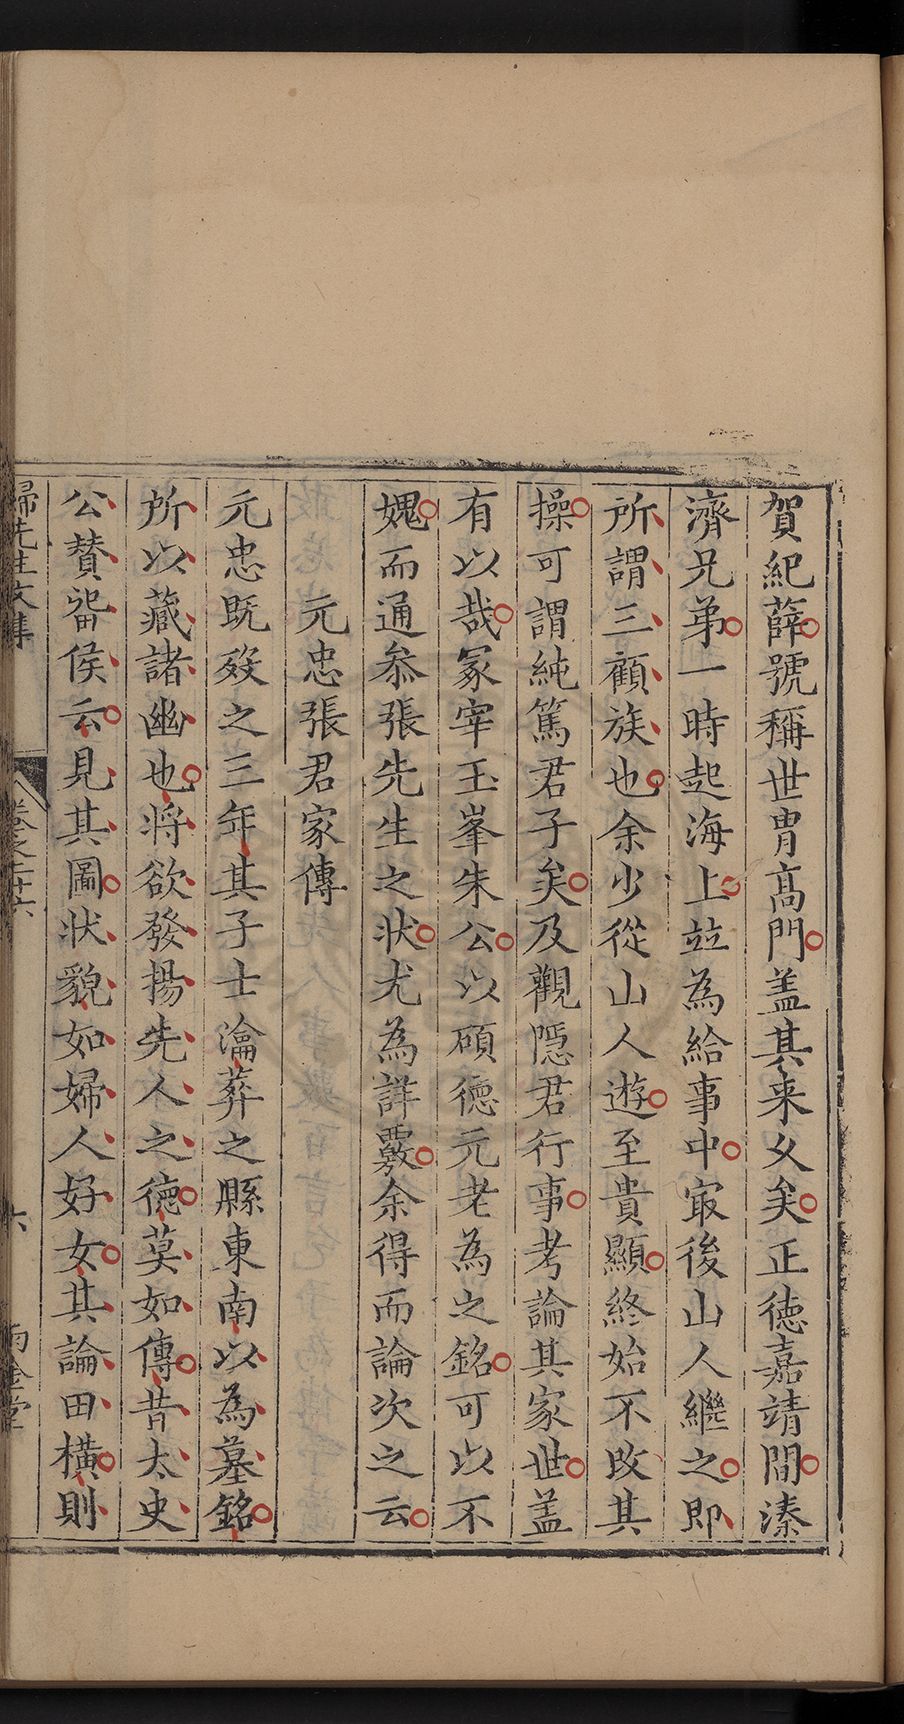 賀紀薛號稱世胄高門盖其来乆矣正徳嘉靖間溱
濟兄弟一時起海上竝為給事中㝡後山人繼之即
所謂三顧族也余少從山人遊至貴顯終始不改其
操可謂純篤君子矣及觀隠君行事考論其家世盖
有以哉冢宰玉峯朱公以碩徳元老為之銘可以不
媿而通叅張先生之状尤為詳覈余得而論次之云
元忠張君家傳
元忠既歿之三年其子士瀹葬之縣東南以為墓銘
所以藏諸幽也将欲發揚先人之徳莫如傳昔太史
公賛畱侯云見其圖状貌如婦人好女其論田橫則
歸先生文集
卷之二十六
六
雨金堂